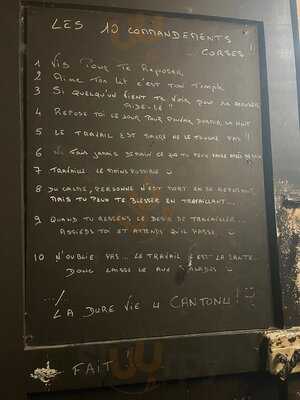 LES 10 COMMANDEMENTS
CORSES !
1 VIS POUR TE REPOSER
2 AIME TON LIT C'EST TON TEMPLE
3 SI QUELQU'UN VIENT TE VOIR POUR
AIDE-LE !!
4 REPOSE TOI LE JOUR POUR POUVOIR DORMIR LA NUIT
5 LE TRAVAIL EST SACRE NE LE TOUCHE PAS !!
6 JAMAIS DEMAIN CE QUE TU PEUX FAIRE APRÈS DEMAIN
7 TRAVAILLE LE MOINS POSSIBLE
8 DU CALME, PERSONNE N'EST MORT EN SE REPOSANT
MAIS TU PEUX TE BLESSER EN TRAVAILLANT...
9 QUAND TU RESSENS LE DESIR DE TRAVAILLER...
ASSIEDS TOI ET ATTENDS QU'IL PASSE.
10 N'OUBLIE PAS... LE TRAVAIL C'EST LA SANTE...
DONC LAISSE LE AUX MALADES
.../
LA DURE VIE U CANTONU !
FAIT